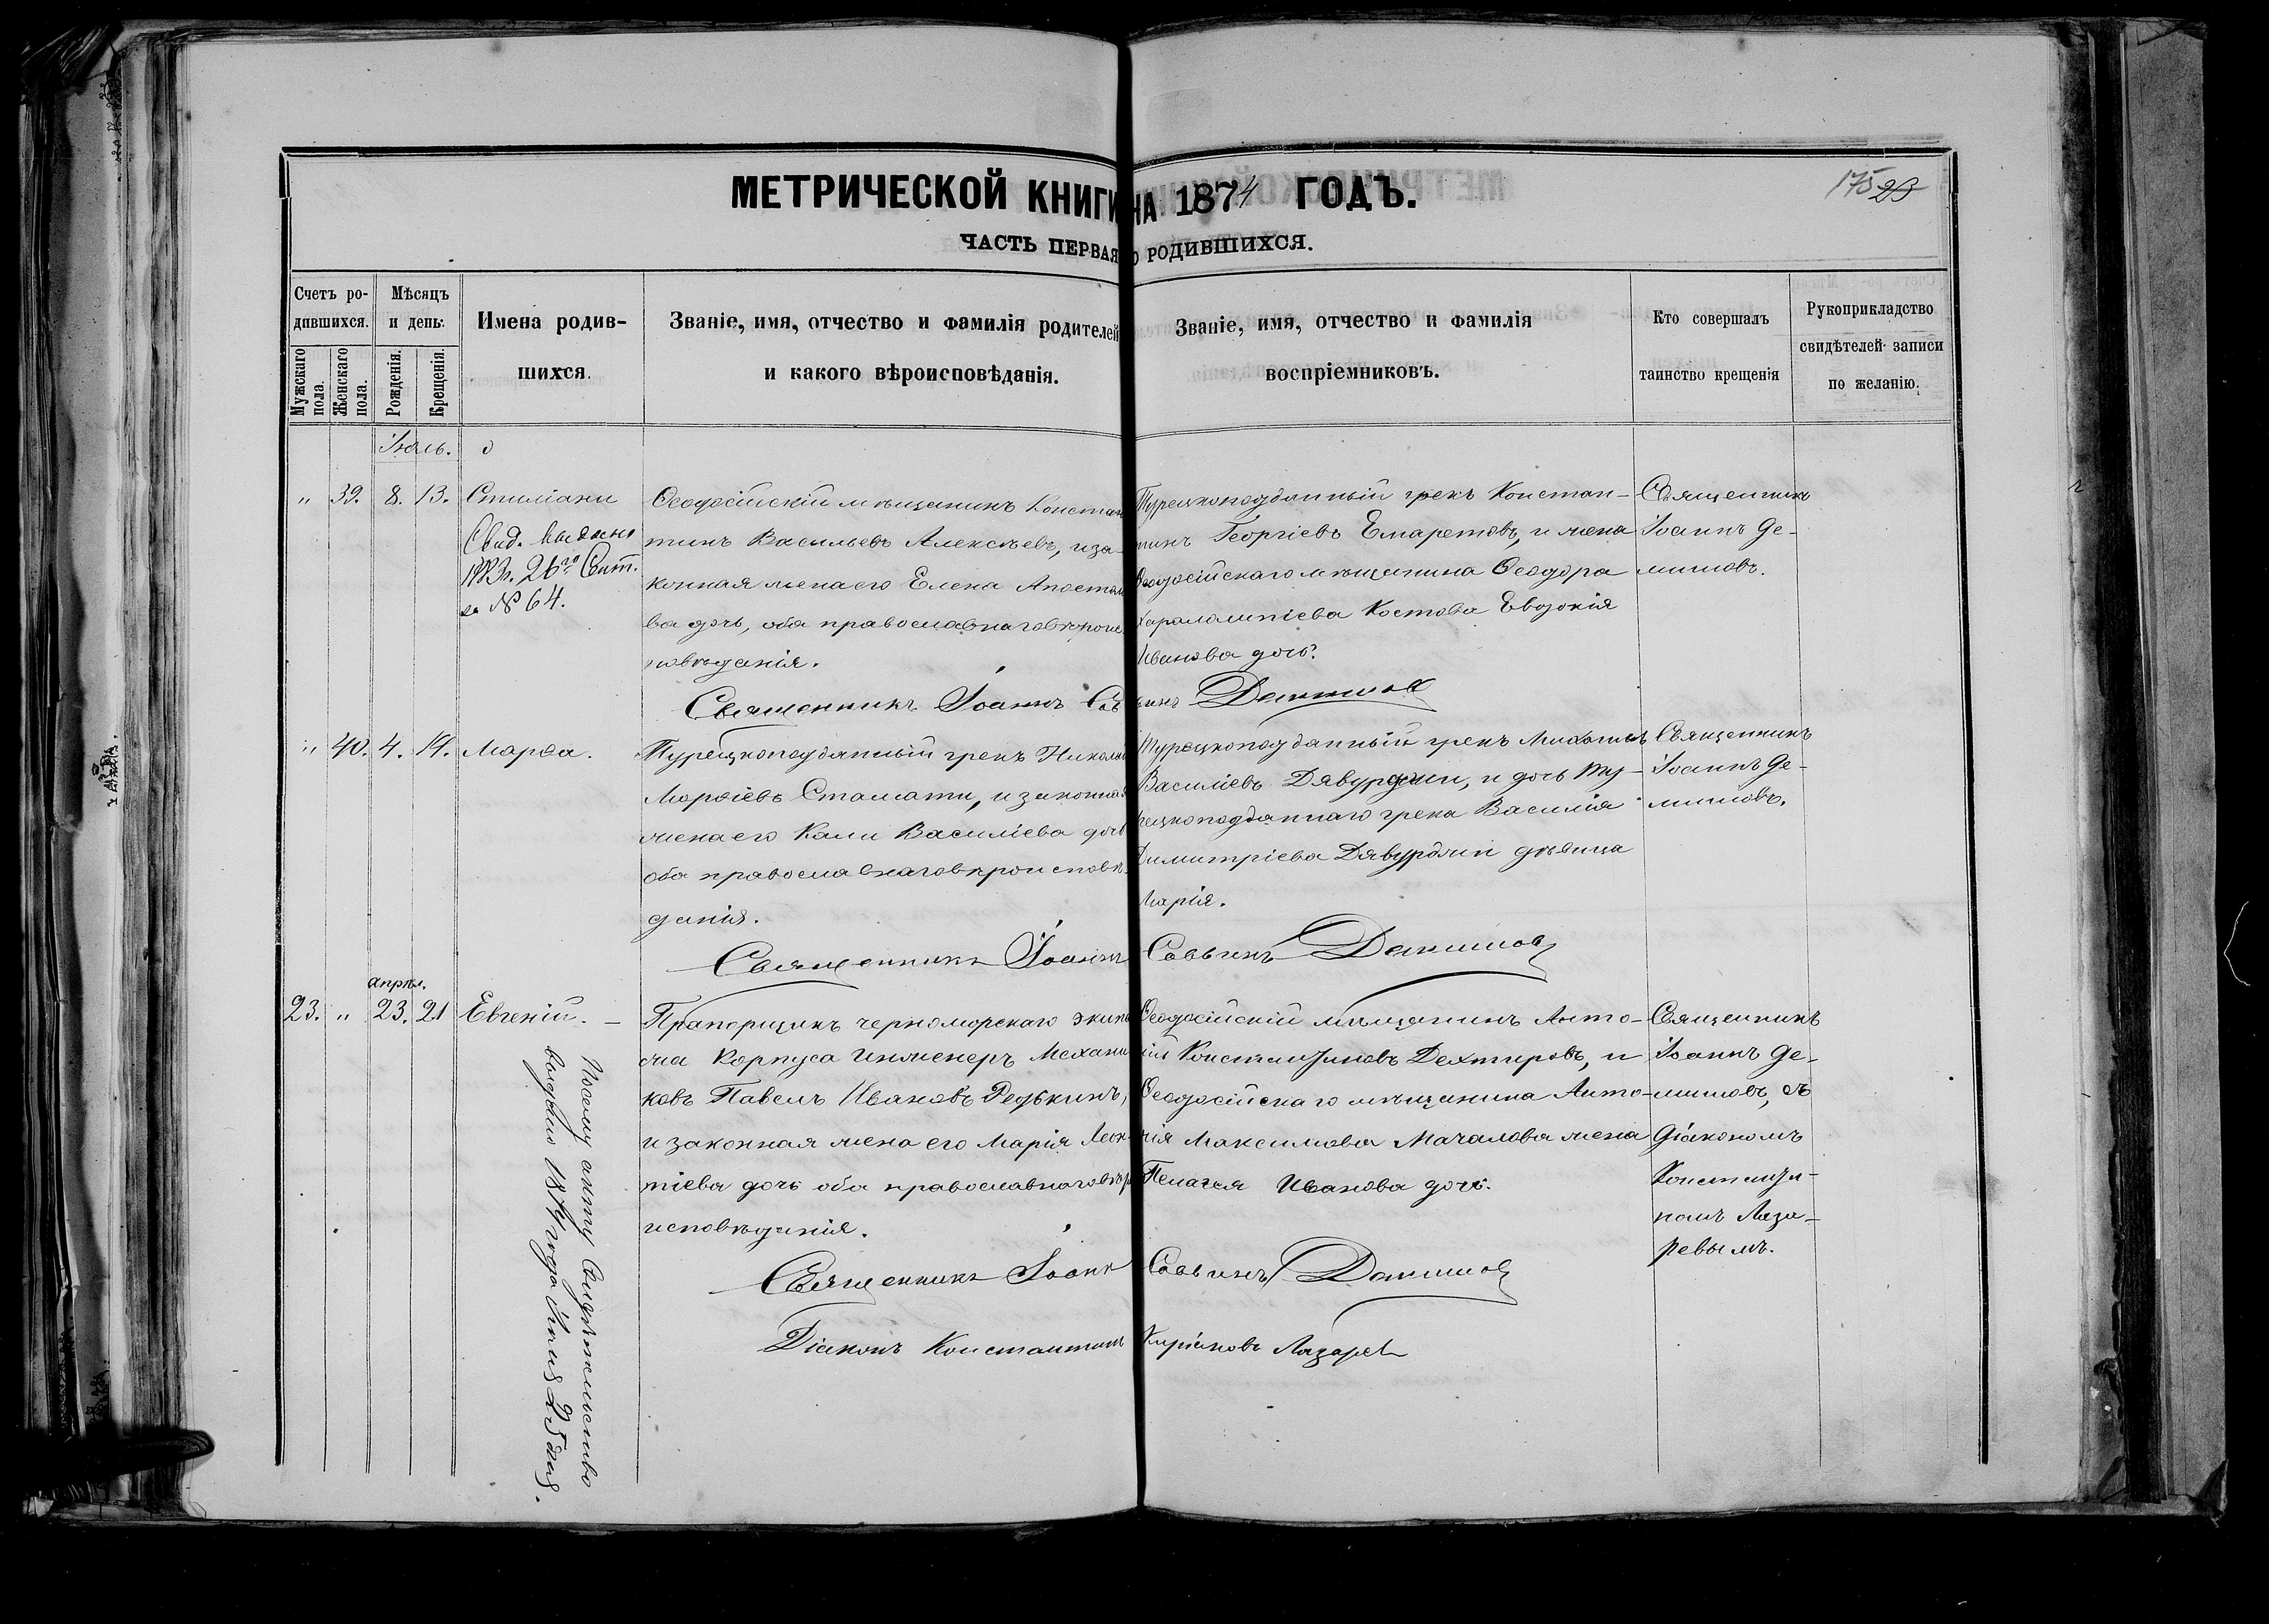 МЕТРИЧЕСКОЙ КНИГИ НА 1874 ГОДЪ.
175 23
ЧАСТЬ ПЕРВАЯ О РОДИВШИХСЯ.
Счетъ ро-
дившихся.
Мужскаго пола.
Женскаго пола.
Мѣсяцъ
и день.
Рожденія.
Крещенія.
Имена родив-
шихся.
Званіе, имя, отчество и фамилія родителей
и какого вѣроисповѣданія.
Званіе, имя, отчество и фамилія
воспріемниковъ.
Кто совершалъ
таинство крещенія
Рукоприкладство
свидѣтелей записи
по желанію.
Іюль.
" 39. 8. 13. Стиліани
Свид. выдано
26го Сент.
за № 64.
Ѳеодосійскій мѣщанинъ Констан
тинъ Васильевъ Алексѣевъ, и за-
конная жена его Елена Апостоло
ва дочь, оба православнаго вѣроис
повѣданія.
Турецкоподданный грекъ Констан-
тинъ Георгіевъ Емаретовъ, и жена
Ѳеодосійскаго мѣщанина Ѳеодора
Харалампіева Костова Евдокія
Иванова дочь.
Священникъ
Іоаннъ Де-
миновъ.
Священникъ Іоаннъ Саввинъ Деминовъ
" 40. 4. 14. Марѳа.
Турецкоподданный грекъ Николай
Стамати, и законная
жена его Кали Василіева дочь
оба православнаго вѣроисповѣ-
данія.
Турецкоподданный грекъ Михаилъ
Василіевъ Дявурджи, и дочь Ту-
рецкоподданнаго грека Василія
Димитріева Дявурджи дѣвица
Марія.
Священникъ
Іоаннъ Де-
миновъ.
Священникъ Іоаннъ Саввинъ Деминовъ
апрѣл.
23. " 23. 21 Евгеній. -
Посему акту Свидѣтельство
выдано 1874 года 25 дня.
Прапорщикъ черноморскаго экипа
жа Корпуса Инженеръ Механи
ковъ Павелъ Ивановъ Редькинъ,
и законная жена его Марія Леон-
тіева дочь оба православнаго вѣро
исповѣданія.
Ѳеодосійскій мѣщанинъ Анто-
ній Константиновъ Дехтировъ, и
Ѳеодосійскаго мѣщанина Анто-
нія Максимова Мачалова жена
Пелагея Иванова дочь.
Священникъ
Іоаннъ Де-
миновъ, съ
Діакономъ
Константи-
номъ Лаза-
ревымъ.
Священникъ Іоаннъ Саввинъ Деминовъ
Діаконъ Константинъ Киріаковъ Лазарев